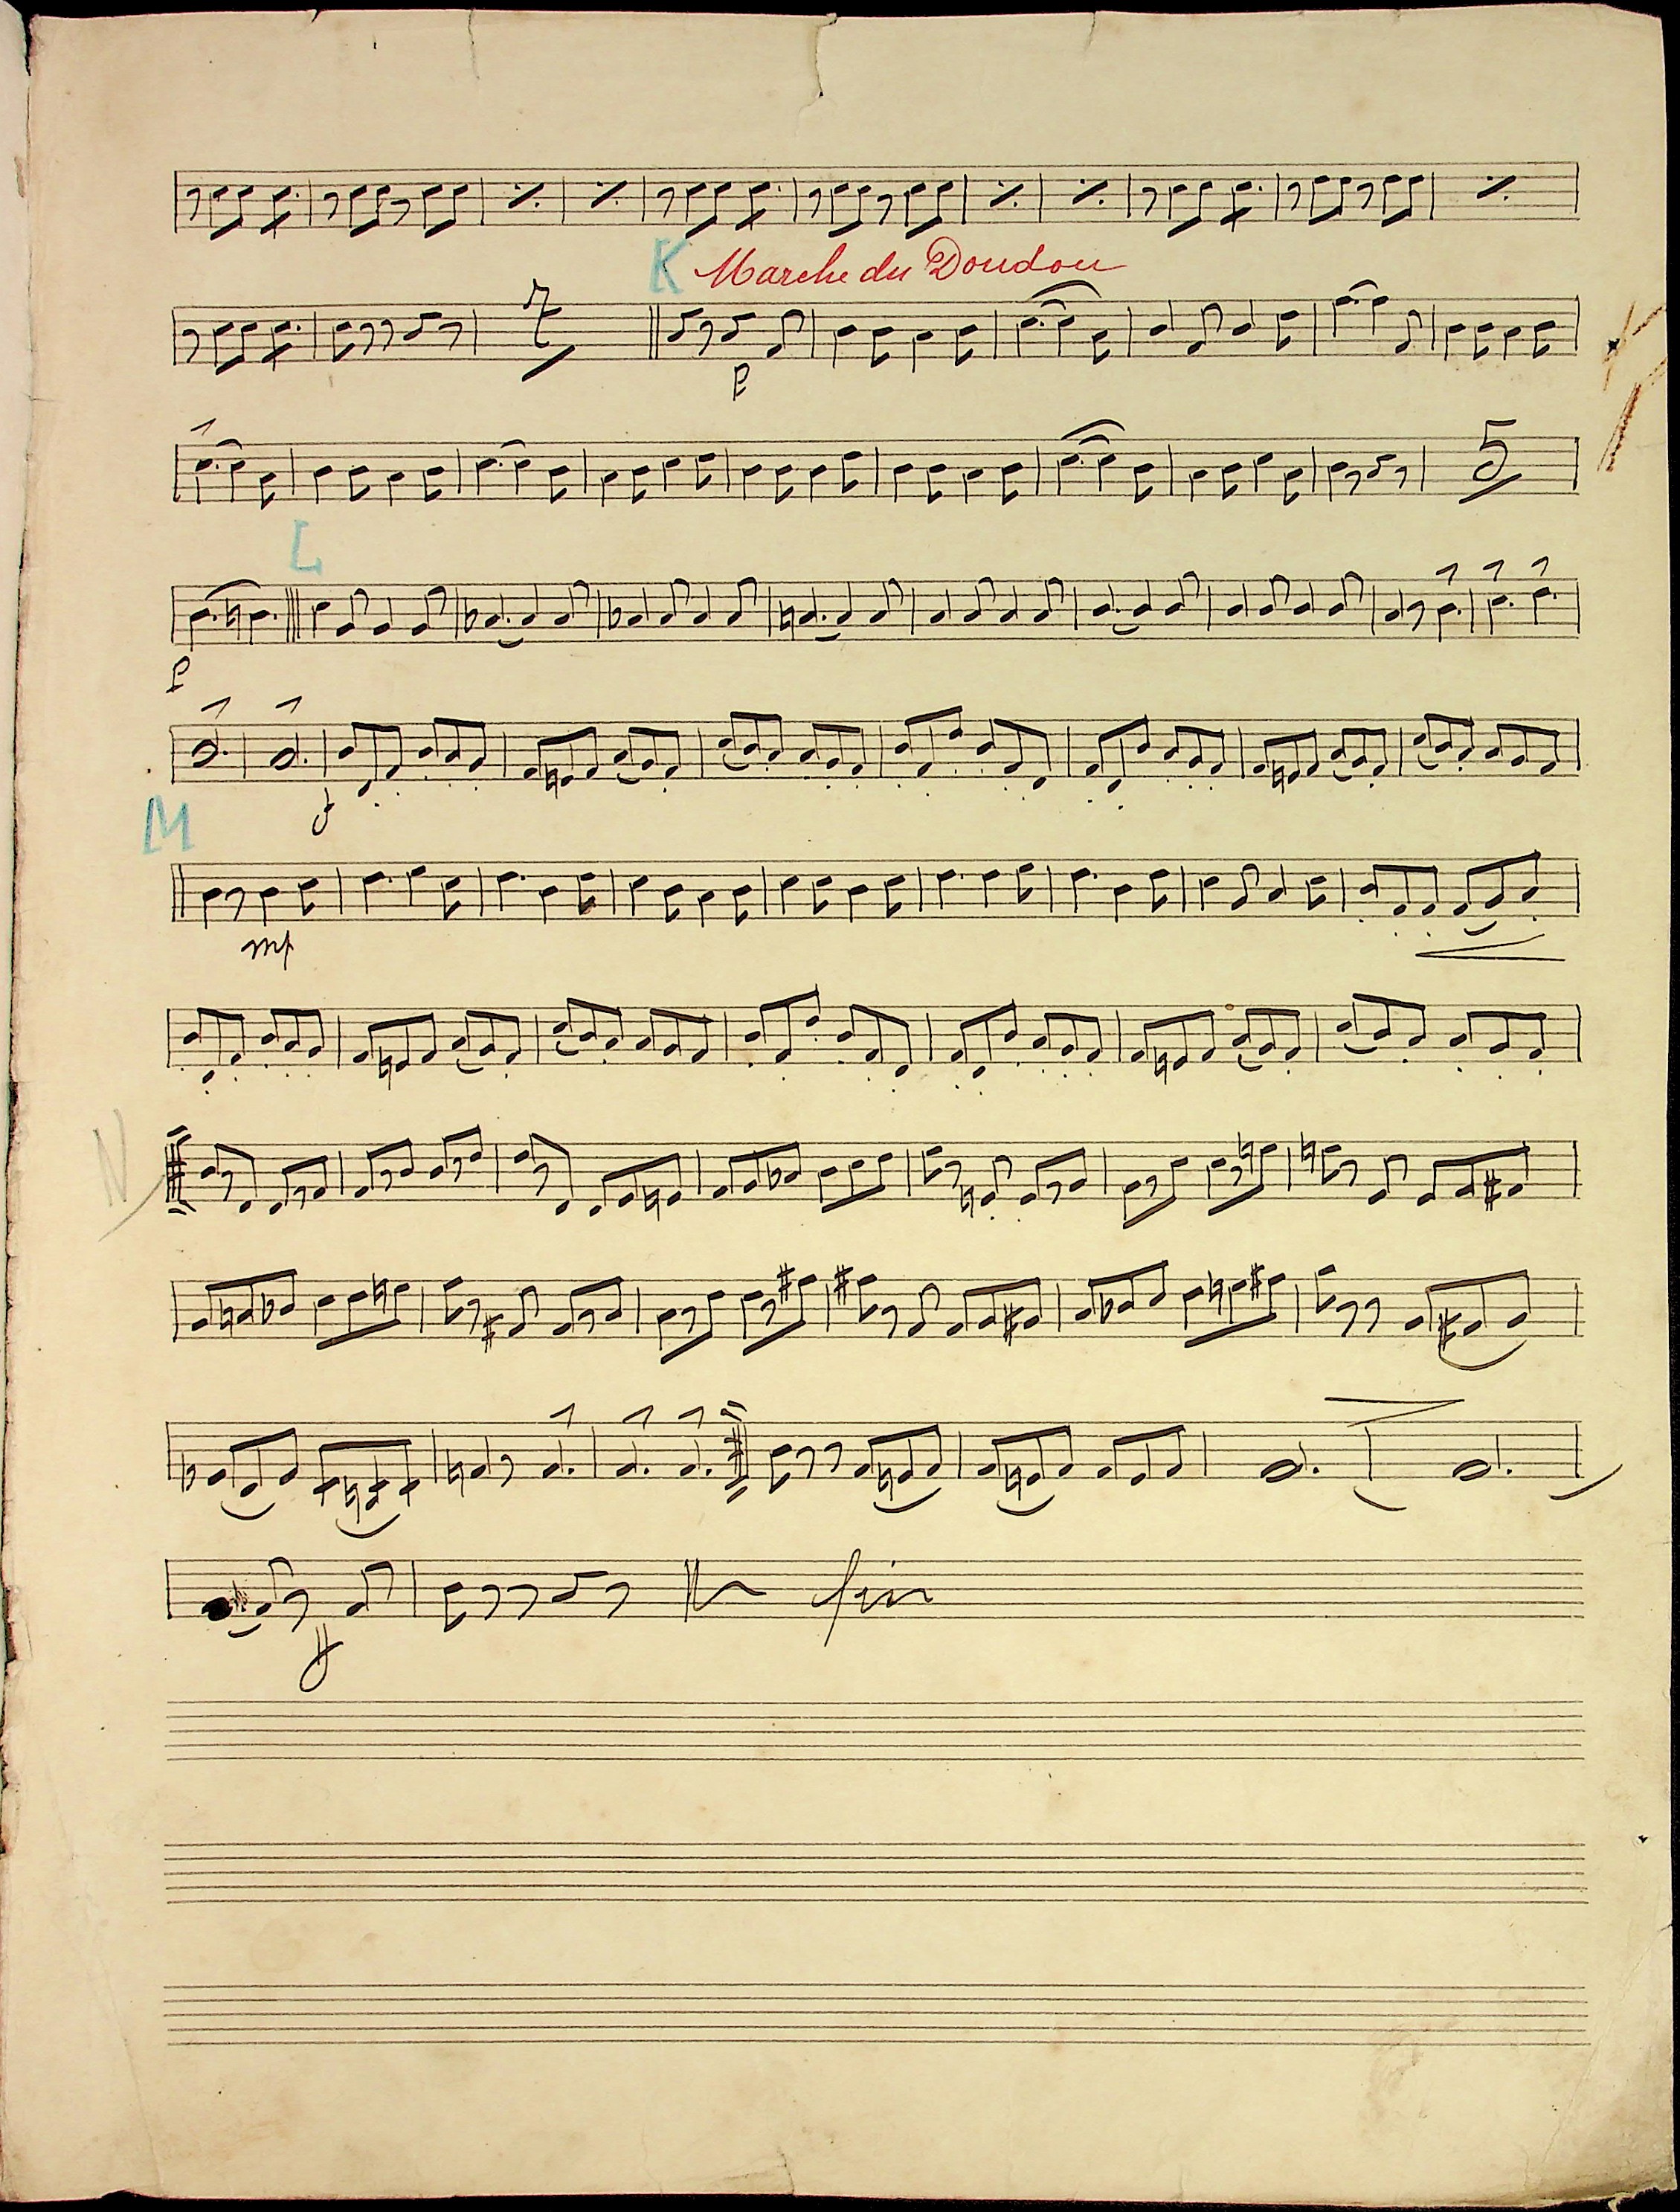 K Marche du Doudou
7
p
5
L
p
f
M
mp
N
fin
ff